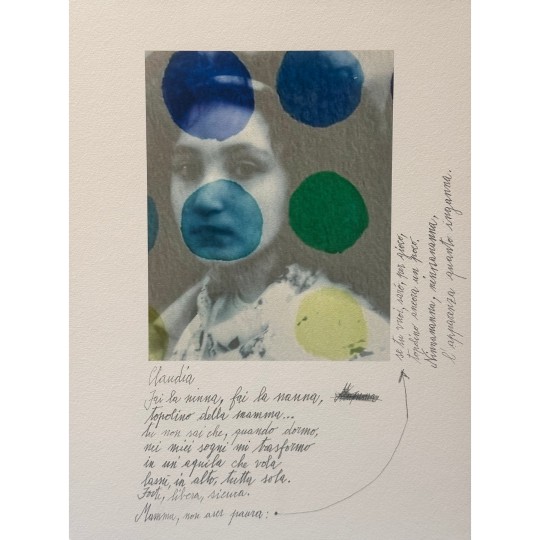 Claudia
Fai la ninna, fai la nanna,
topolino della mamma...
tu non sai che, quando dormo,
nei miei sogni mi trasformo
in un'aquila che vola
lassù, in alto, tutta sola.
Forte, libera, sicura.
Mamma, non aver paura:
se tu vuoi, sarò, per gioco,
topolino ancora un poco.
Ninnananna, ninnananna,
l'apparenza quanto inganna.